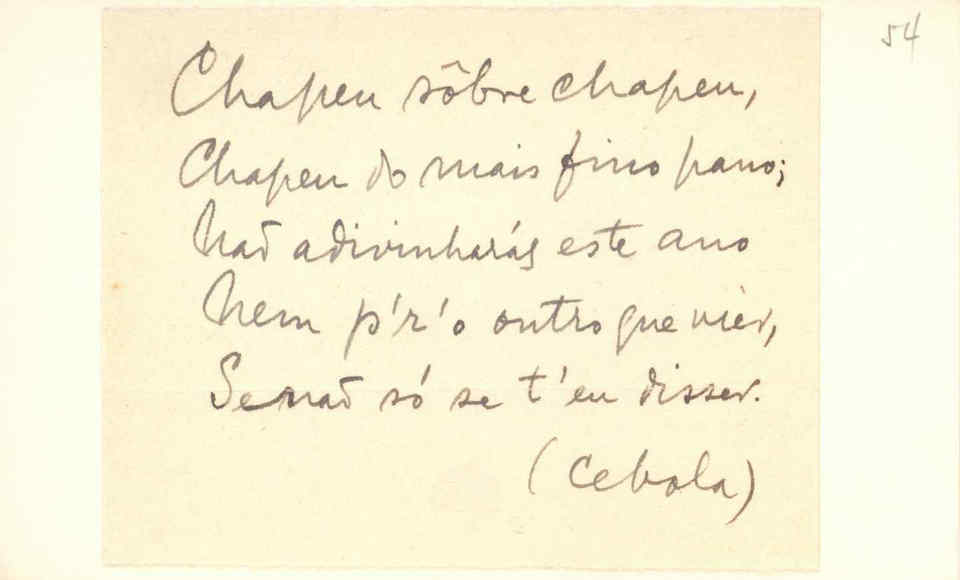 54
Chapeu sôbre chapeu,
Chapeu do mais fino pano;
Não adivinharás este ano
Nem p'r'o outro que vier,
Senão só se t'eu disser.
(Cebola)